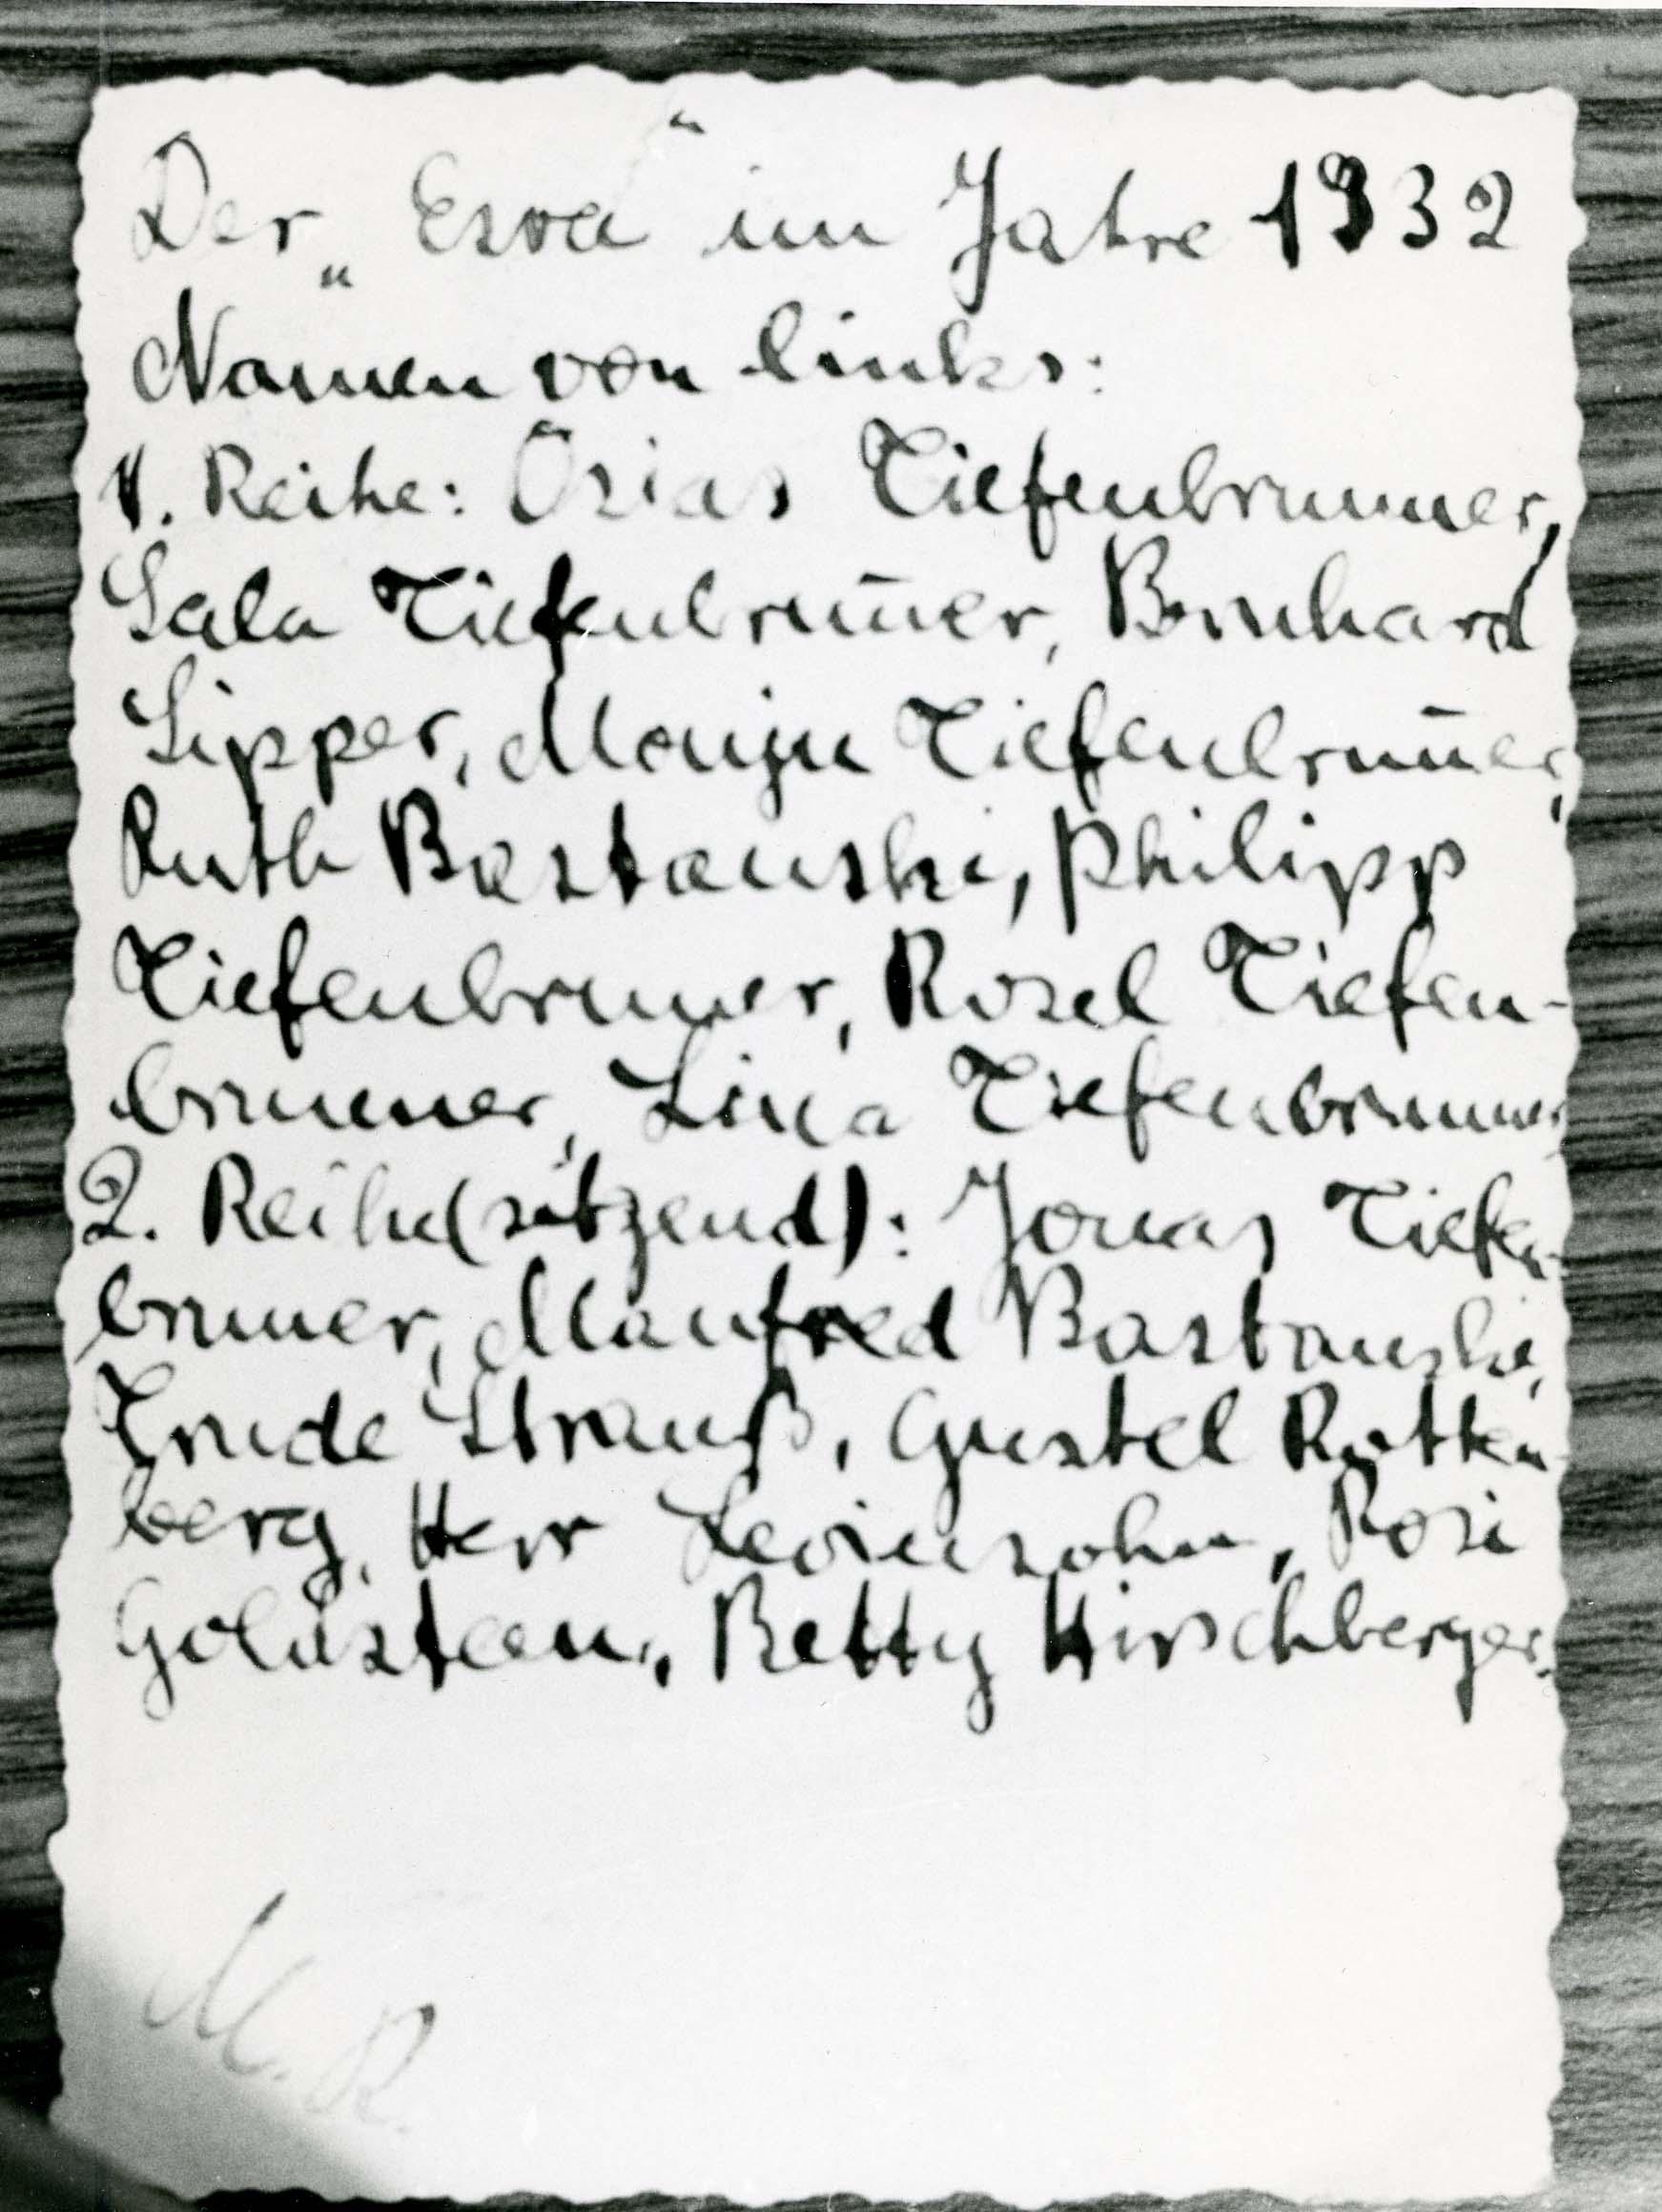 Der „Esra“ im Jahre 1932
Namen von links:
1. Reihe: Osias Tiefenbrunner,
Sala Tiefenbruñer, Bernhard
Lipper, Tiefenbruñer,
Ruth Bastanski, Philipp
Tiefenbrunner, Rosel Tiefen-
brunner, Lina Tiefenbrunner
2. Reihe (sitzend): Jonas Tiefen-
brunner, Manfred Bastanski,
Trude Strauß, Gustel Rotten-
berg, Herr Levinsohn, Rosi
Goldstein, Betty Hirschberger.
M. R.